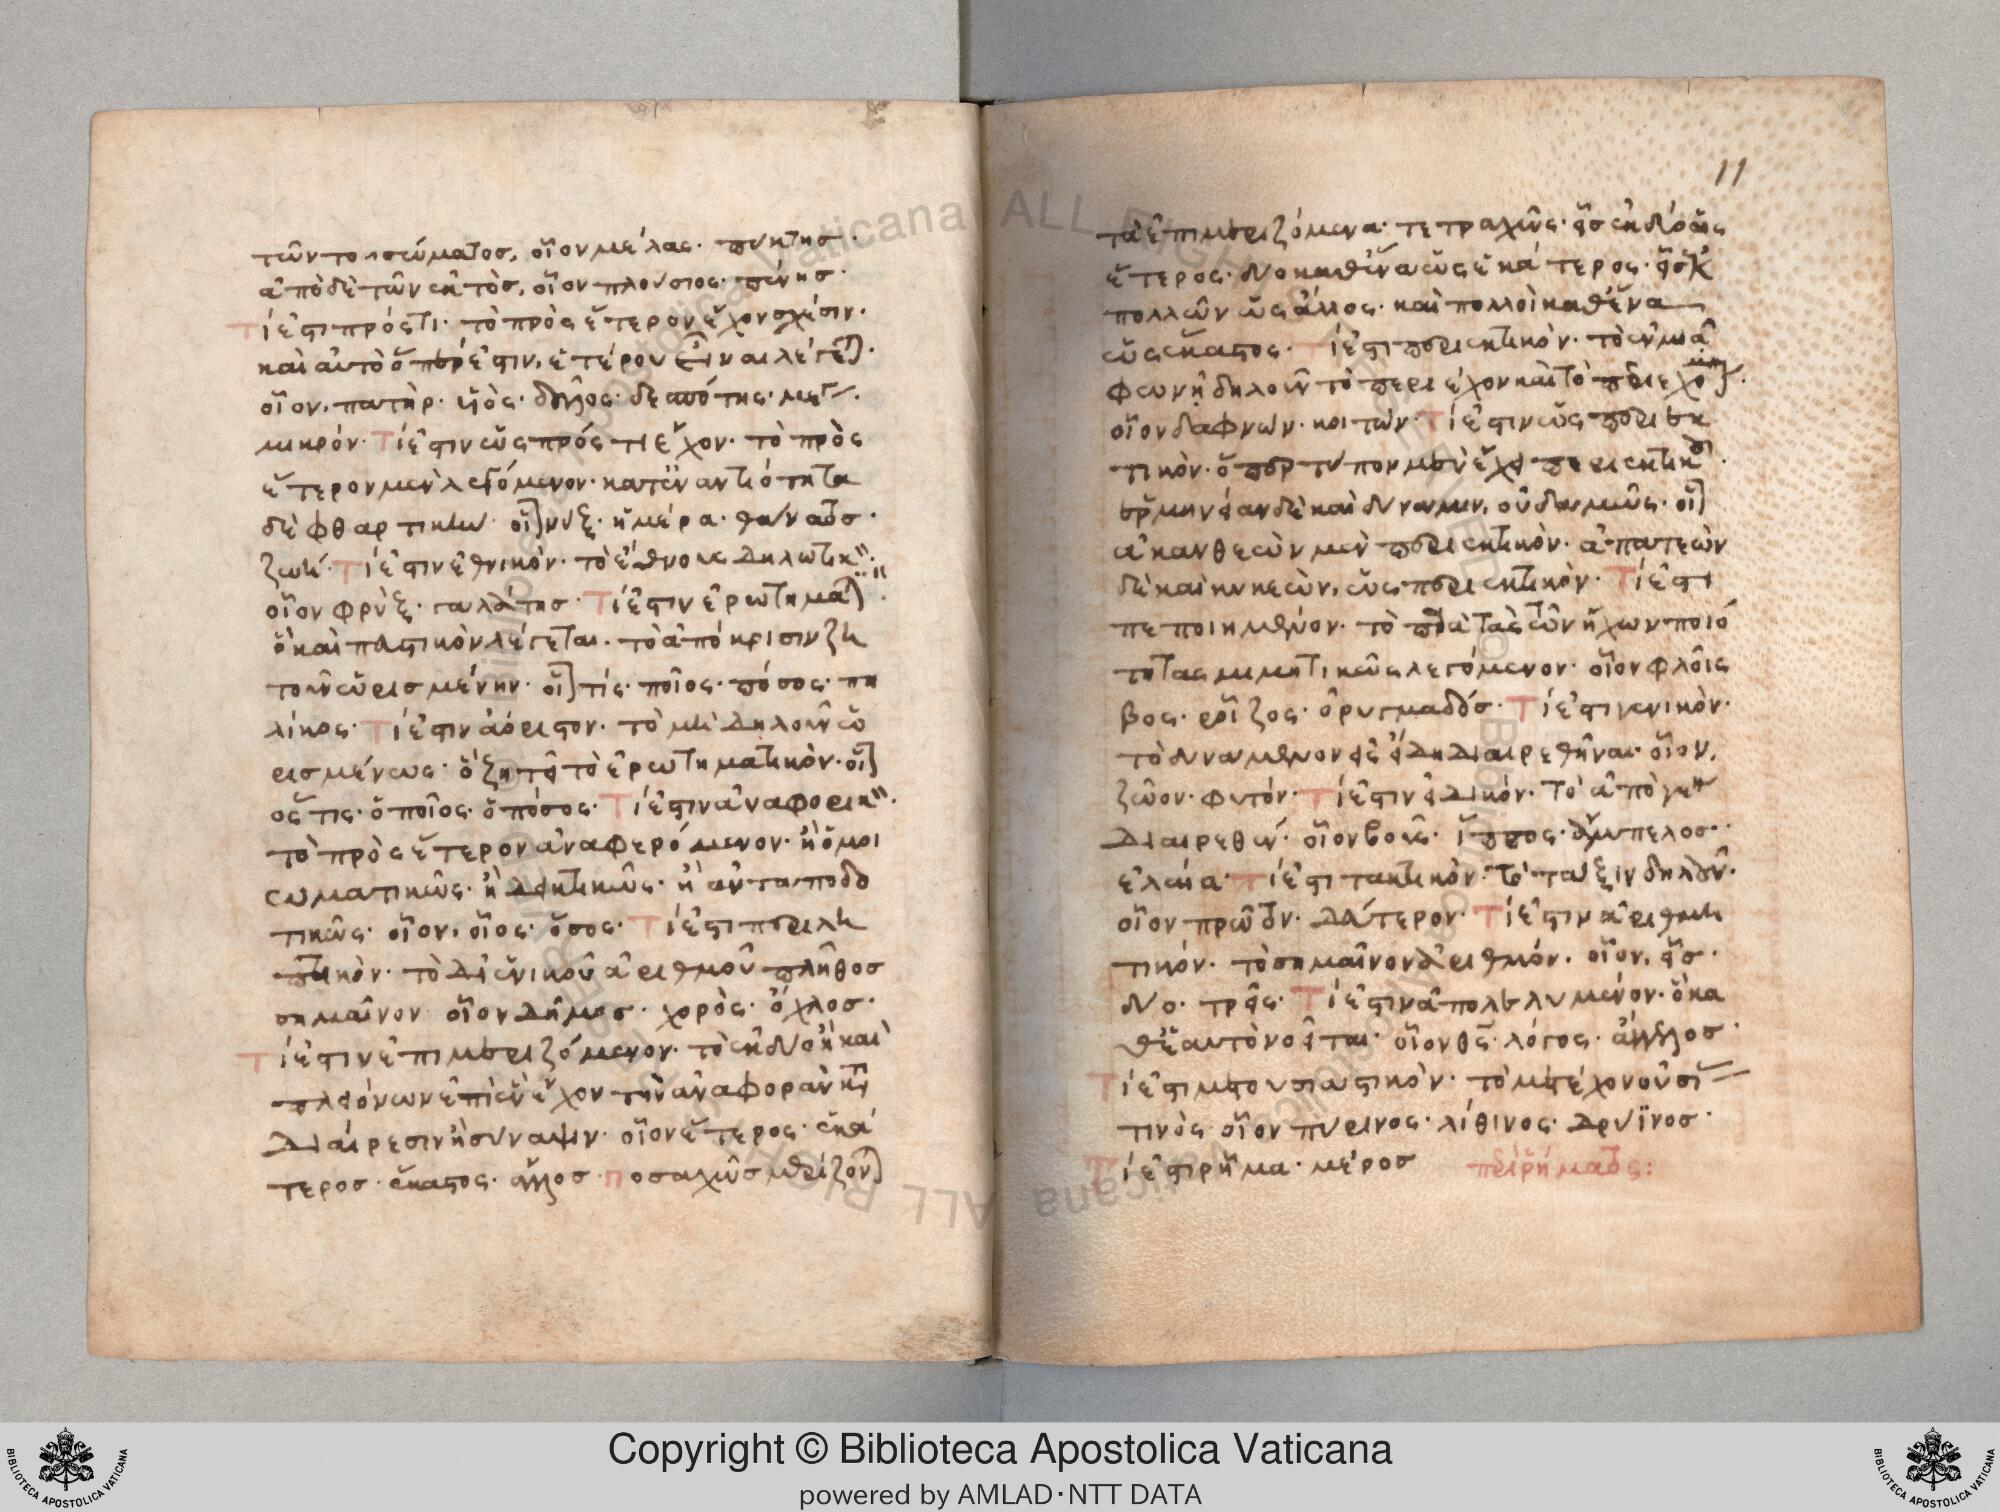 τῶν τοῦ σώματος, οἷον μέλας·
ἀπὸ δὲ τῶν ἐκτὸς, οἷον πλούσιος· πένης·
Τί ἐστι πρός τι· τὸ πρὸς ἕτερον ἔχον σχέσιν·
καὶ αὐτὸ ὅπερ ἐστιν, ἑτέρου εἶναι λέγεται·
οἷον, πατὴρ· υἱὸς· δοῦλος· δεσπότης· μέγα·
μικρόν· Τί ἐστιν ὡς πρός τι ἔχον· τὸ πρὸς
ἕτερον μὲν λεγόμενον· κατ' ἐναντιότητα
δὲ φθαρτικὴν· οἷον νὺξ· ἡμέρα· θάνατος·
ζωή· Τί ἐστιν ἐθνικὸν· τὸ ἔθνους δηλωτικὸν·
οἷον φρὺξ· γαλάτης· Τί ἐστιν ἐρωτηματικὸν·
ὃ καὶ πευστικὸν λέγεται· τὸ ἀπόκρισιν ζη
τοῦν ὡρισμένην· οἷον τίς· ποῖος· πόσος· πη
λίκος· Τί ἐστιν ἀόριστον· τὸ μὴ δηλοῦν ὡ
ρισμένως· ὃ ζητεῖ τὸ ἐρωτηματικὸν· οἷον
ὅστις· ὁποῖος· ὁπόσος· Τί ἐστιν ἀναφορικὸν·
τὸ πρὸς ἕτερον ἀναφερόμενον· ἢ ὁμοι
ωματικῶς· ἢ δεικτικῶς· ἢ ἀνταποδο
τικῶς· οἷον, οἷος· ὅσος· Τί ἐστι περιλη
πτικὸν· τὸ δι' ἑνικοῦ ἀριθμοῦ πλῆθος
σημαῖνον οἷον δῆμος· χορὸς· ὄχλος·
Τί ἐστιν ἐπιμεριζόμενον· τὸ ἐκ δύο ἢ καὶ
πλειόνων ἐπὶ ἓν ἔχον τὴν ἀναφορὰν κατὰ
διαίρεσιν ἢ σύναψιν· οἷον ἕτερος· ἑκά
τερος· ἕκαστος· ἄλλος· Ποσαχῶς μερίζονται
11
τὰ ἐπιμεριζόμενα· τετραχῶς· εἷς ἐκ δύο ὡς
ἕτερος· δύο καθ' ἕνα ὡς ἑκάτερος· εἷς ἐκ
πολλῶν ὡς ἄλλος· καὶ πολλοὶ καθ' ἕνα
ὡς ἕκαστος· Τί ἐστι περιεκτικὸν· τὸ ἐν μιᾷ
φωνῇ δηλοῦν τὸ περιέχον καὶ τὸ περιεχόμενον·
οἷον δαφνών· κοιτών· Τί ἐστιν ὡς περιεκ
τικὸν· ὅπερ τύπον μὲν ἔχει περιεκτικοῦ·
ἑρμηνείαν δὲ καὶ δύναμιν, οὐδαμῶς· οἷον
ἀκανθεὼν μὲν περιεκτικὸν· ἀπατεὼν
δὲ καὶ κυκεὼν, ὡς περιεκτικὸν· Τί ἐστι
πεποιημένον· τὸ παρὰ τὰς τῶν ἤχων ποιό
τητας μιμητικῶς λεγόμενον· οἷον φλοῖσ
βος· ῥοῖζος· ὀρυγμαδός· Τί ἐστι γενικὸν·
τὸ δυνάμενον εἰς εἴδη διαιρεθῆναι· οἷον,
ζῶον· φυτόν· Τί ἐστιν εἰδικόν· τὸ ἀπὸ γένους
διαιρεθέν· οἷον βοῦς· ἵππος· ἄμπελος·
ἐλαία· Τί ἐστι τακτικὸν· τὸ τάξιν δηλοῦν·
οἷον πρῶτον· δεύτερον· Τί ἐστιν ἀριθμη
τικόν· τὸ σημαῖνον ἀριθμόν. οἷον, εἷς·
δύο· τρεῖς· Τί ἐστιν ἀπολελυμένον· ὃ κα
θ' ἑαυτὸ νοεῖται· οἷον θεὸς· λόγος· ἄγγελος·
Τί ἐστι μετουσιαστικὸν· τὸ μετέχον οὐσίας
τινὸς οἷον πύρινος· λίθινος· δρύϊνος·
Τί ἐστι ῥῆμα· μέρος περὶ ῥήματος:
Copyright © Biblioteca Apostolica Vaticana
powered by AMLAD·NTT DATA
BIBLIOTECA APOSTOLICA VATICANA
BIBLIOTECA APOSTOLICA VATICANA